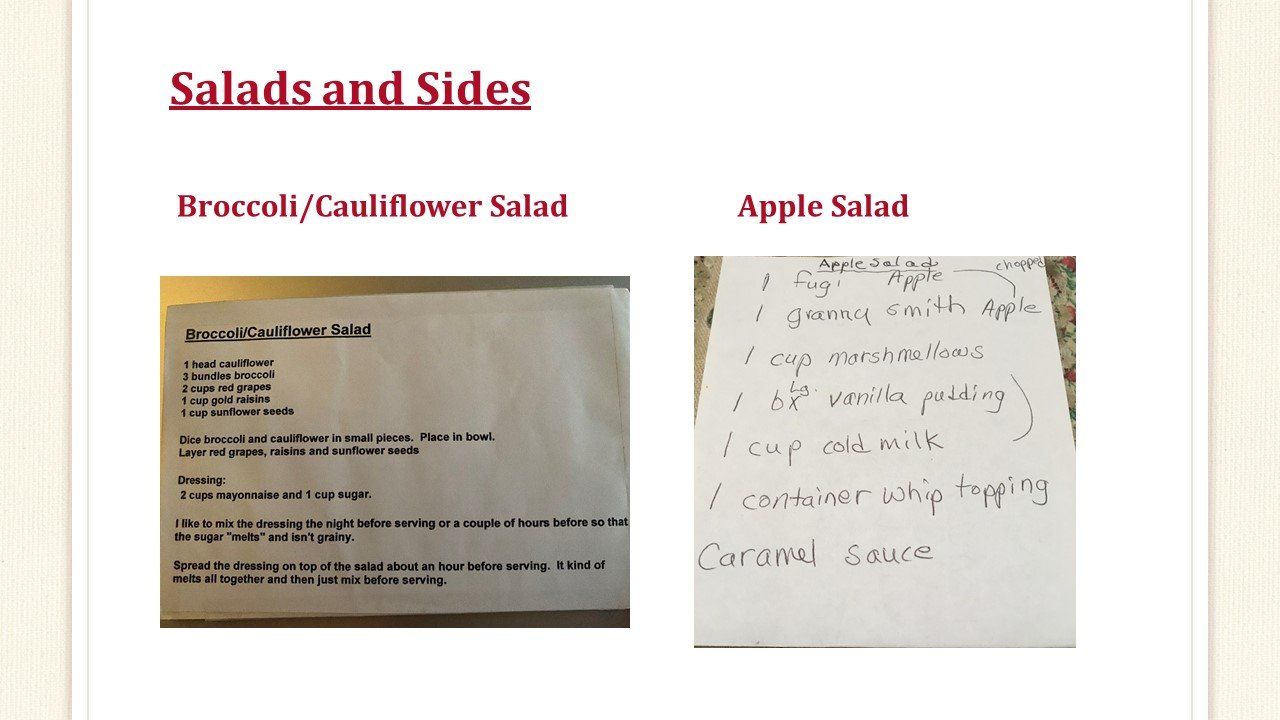 Salads and Sides
Broccoli/Cauliflower Salad
Broccoli/Cauliflower Salad
1 head cauliflower
3 bundles broccoli
2 cups red grapes
1 cup gold raisins
1 cup sunflower seeds
Dice broccoli and cauliflower in small pieces.  Place in bowl.
Layer red grapes, raisins and sunflower seeds
Dressing:
2 cups mayonnaise and 1 cup sugar.
I like to mix the dressing the night before serving or a couple of hours before so that
the sugar "melts" and isn't grainy.
Spread the dressing on top of the salad about an hour before serving.  It kind of
melts all together and then just mix before serving.
Apple Salad
Apple Salad
chopped
1 fugi Apple
1 granny smith Apple
1 cup marshmellows
1 bx lg. vanilla pudding
1 cup cold milk
1 container whip topping
Caramel sauce